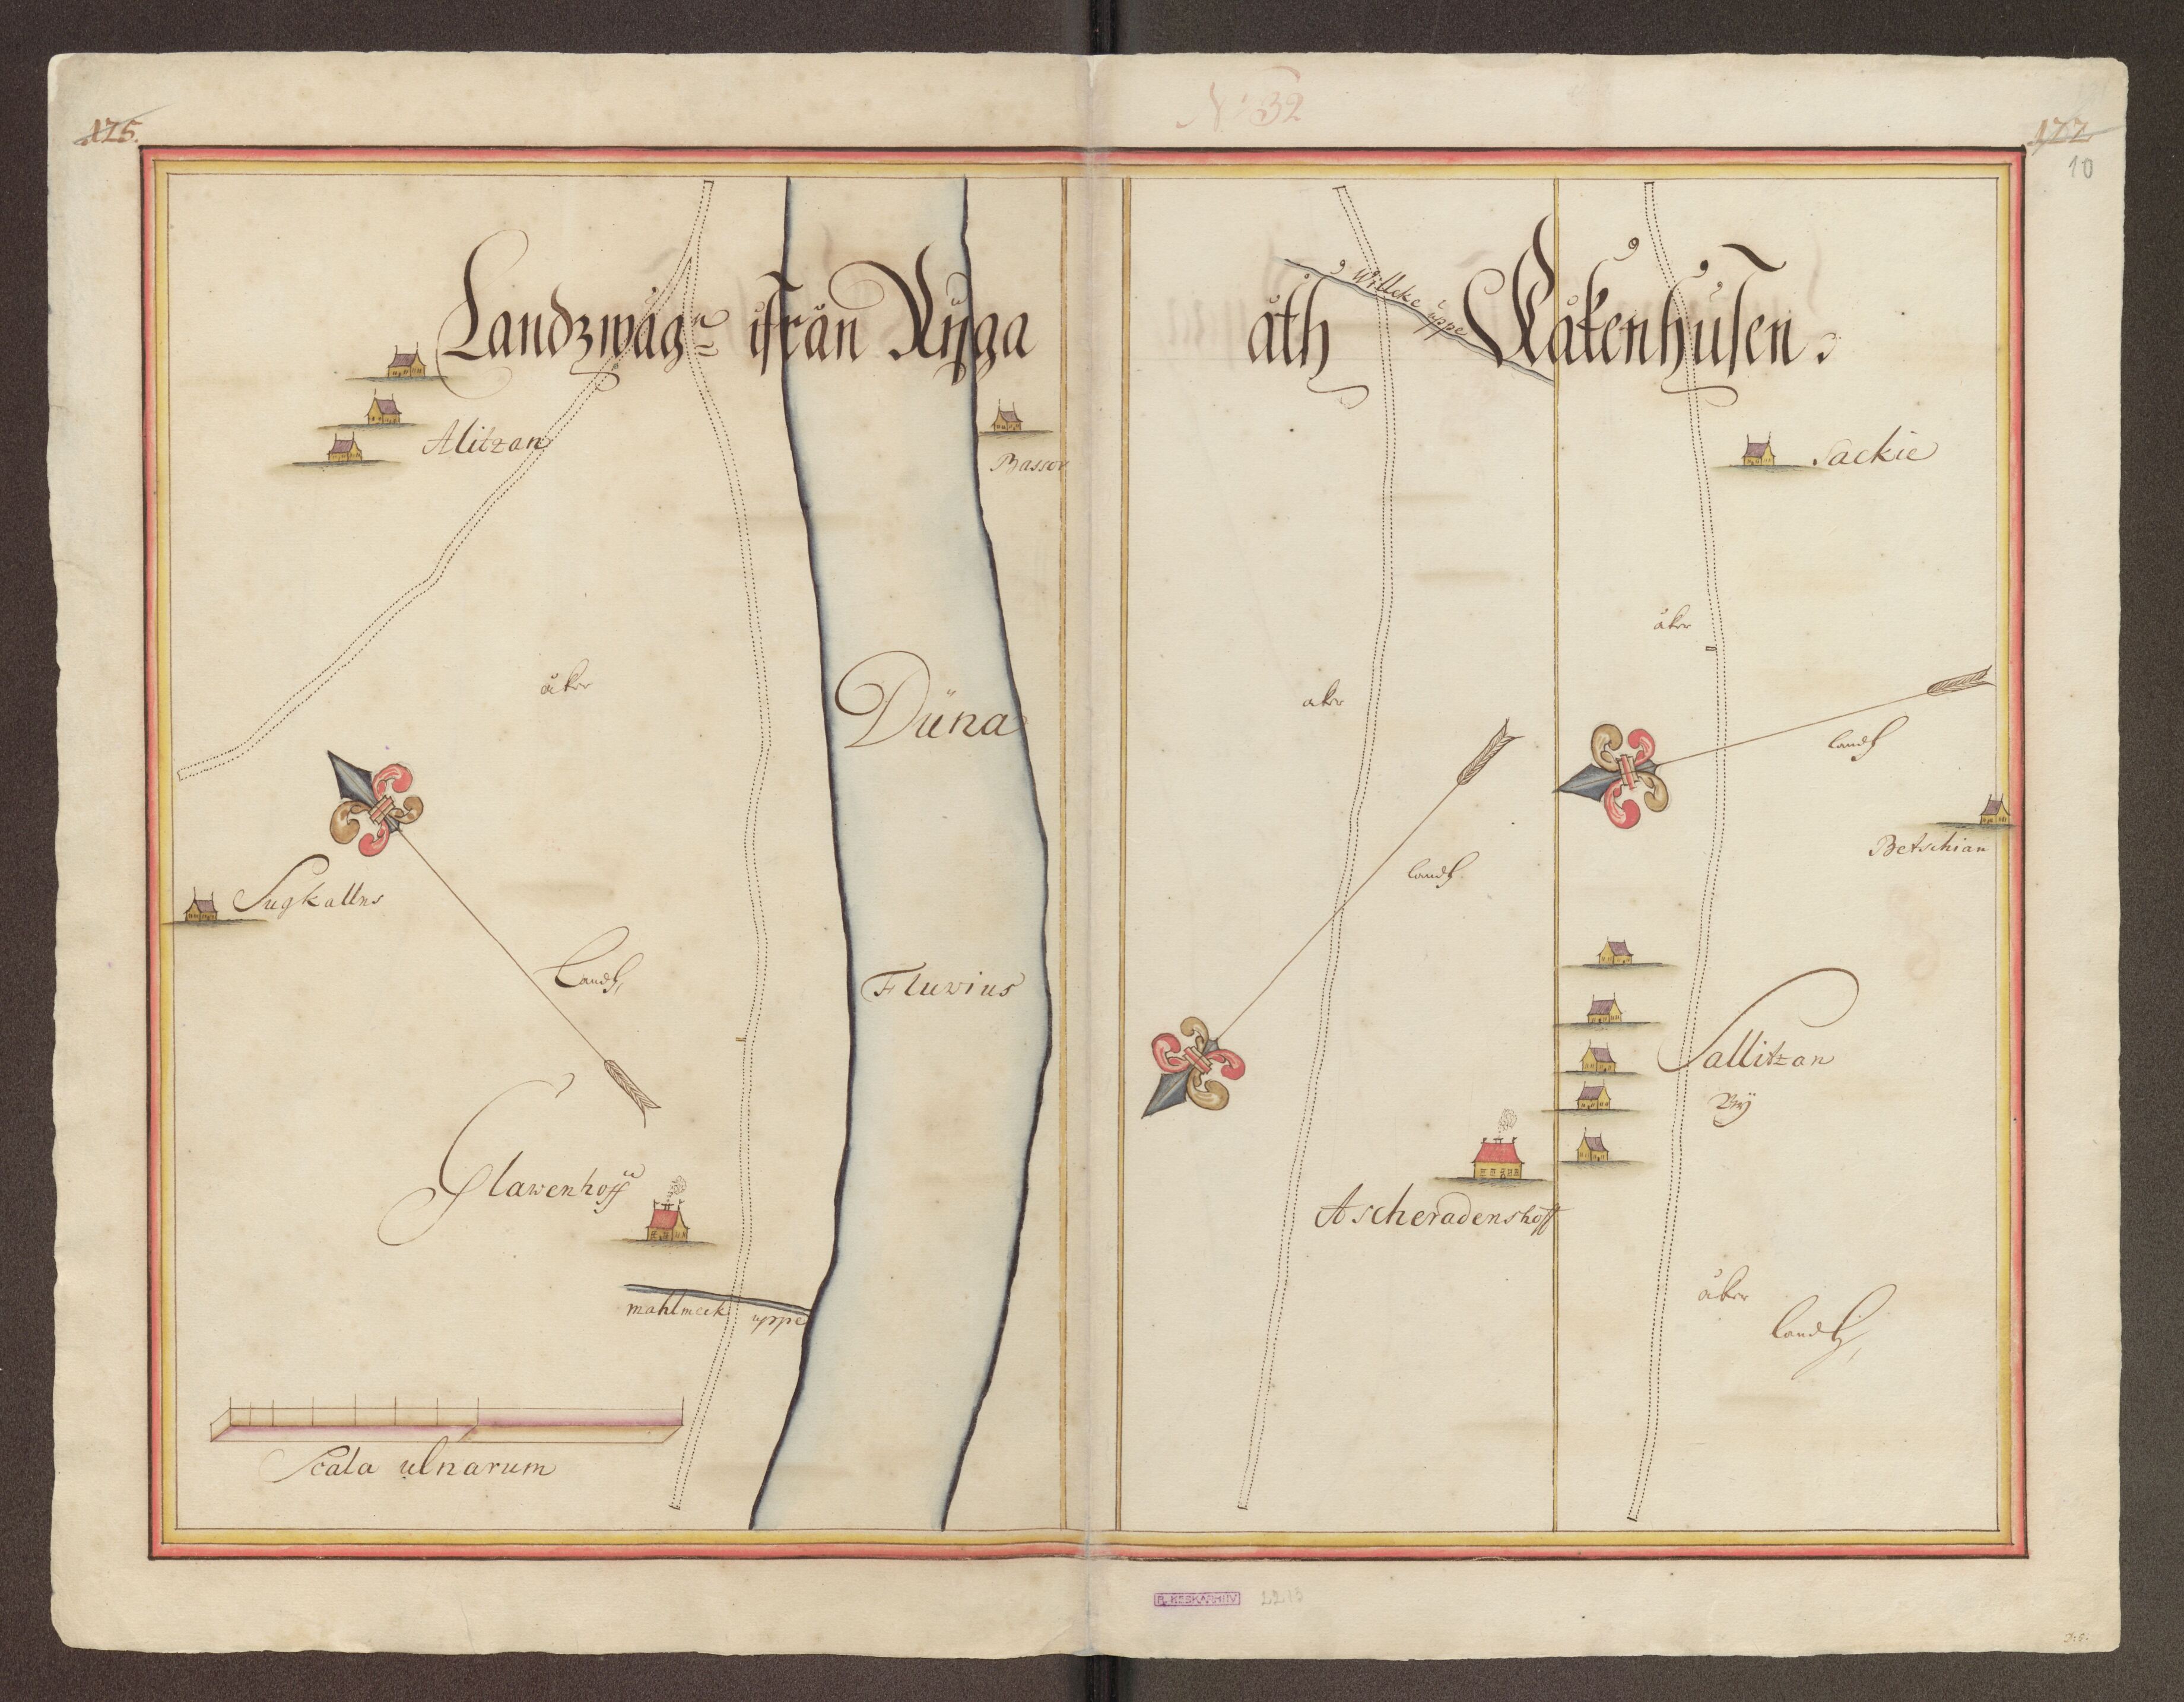 175.
No 32
177
10
Landzwäg:n ifrån Rÿga
åth Kåkenhusen.
Alitzan
Basson
åker
Düna
Sugkallns
Landh
Fluvius
Glawenhoff
mahlmeek uppe
Scala ulnarum
Willcke uppe
aker
landh
Ascheradenshoff
Sackie
åker
landh
Betschian
Sallitzan
Bÿ
åker
landh
R. KESKARHIIV